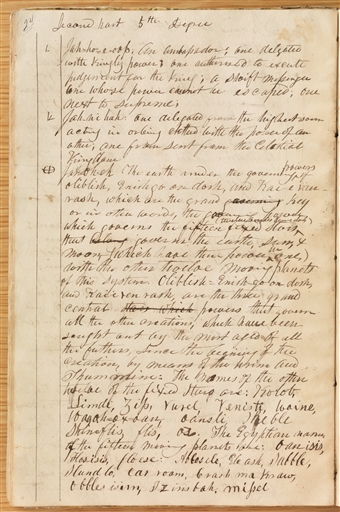 Second part 5th Degree
Jah-ho-e-oop: An ambasador; one delegated
with Kingly power; one authorized to execute
judgement for the King; a swift messenger
one whose power cannot be escaped; one
next to supreme;
Jah-ni hah: one delegated from the highest source
acting in or being clothed with the power of an
other; one from sent from the Celestial
Kingdom
Jah-oh-eh: The earth under the government powers of
oliblish, Enish go on dosh, and Kai-e van
rash, which are the grand key
or in other words, the governing power
which governs the fifteen fixed stars
that governs the earth, sun, &
moon, (which have their power in one,)
with the other twelve moving planets
of this system. Oliblish, Enish go on dosh,
and Kaii ven rash, are the three grand
central stars which powers that govern
all the other creations, which have been
sought out by the most aged of all
the fathers, since the begining of the
creation, by means of the Urim and
Thummim: The names of the other
twelve of the fixed stars are: Kolob,
Limdi, Zip, Vurel, Venisti, Waine,
Wagah ox oan, oansli, Shible
Shineflis, flis, os. The Egyptian names
of the fifteen moving planets are: Oan isis,
Flos isis, floese: Abbesele, Ele ash, Subble,
Slundlo, Car room, Crash ma kraw,
obblesisim, Izinsbah, missel